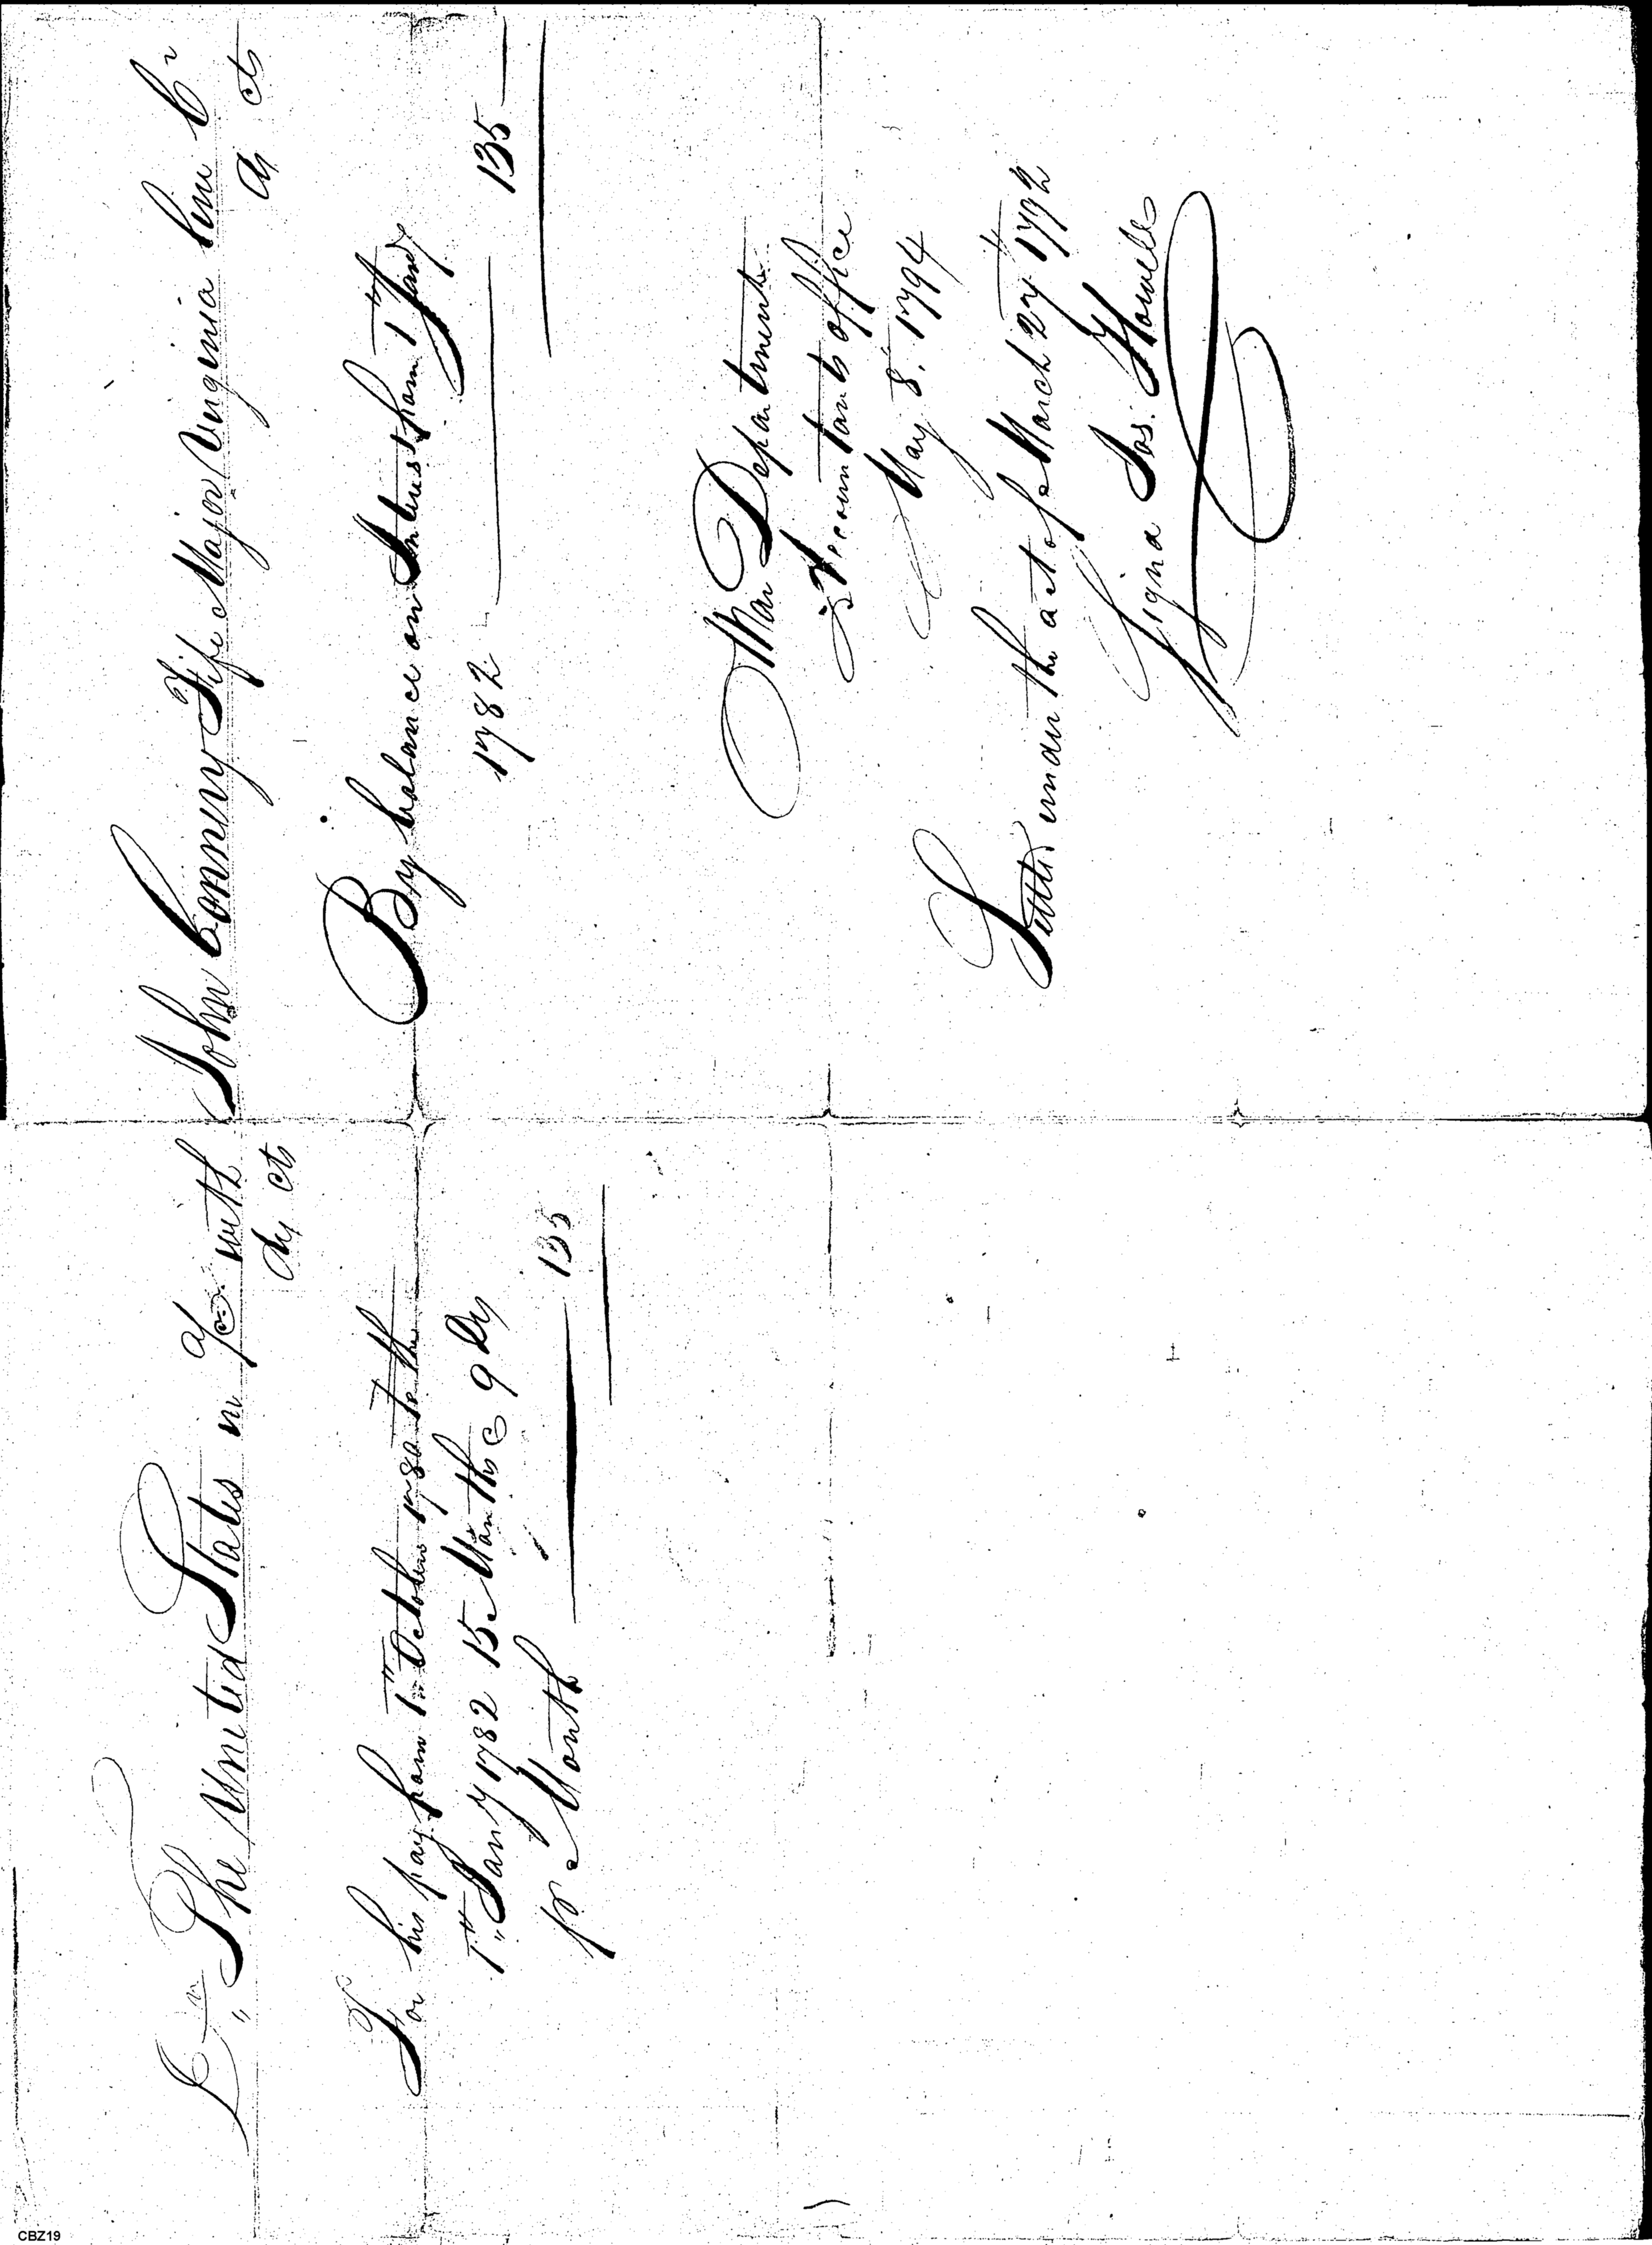 Dr The United States in a/c with
Ds cts
For his pay from 1st October 1780 to the
1st Jany 1782 15 Months @ 9 Ds
pr Month 135
John Conney Fife Major Virginia line Cr
Ds cts
By balance on Interest from 1st Jany
1782 135
War Department
Accountants office
May 8. 1794
Settd under the act of March 27th 1792
Signd Jos. Howell
CBZ19